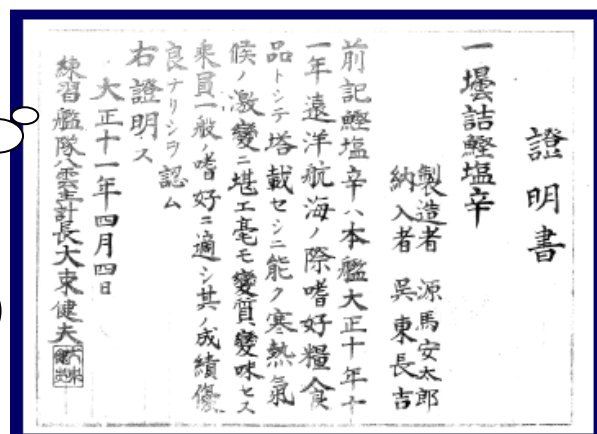 證明書
一壜詰鰹塩辛
製造者 源馬安太郎
納入者 呉東長吉
前記鰹塩辛ハ本艦大正十年十
一年遠洋航海ノ際嗜好糧食
品トシテ塔載セシニ能ク寒熱氣
候ノ激變ニ堪エ毫モ變質變味セス
乗員一般ノ嗜好ニ適シ其ノ成績優
良ナリシヲ認ム
右證明ス
大正十一年四月四日
練習艦隊八雲主計長大東健夫